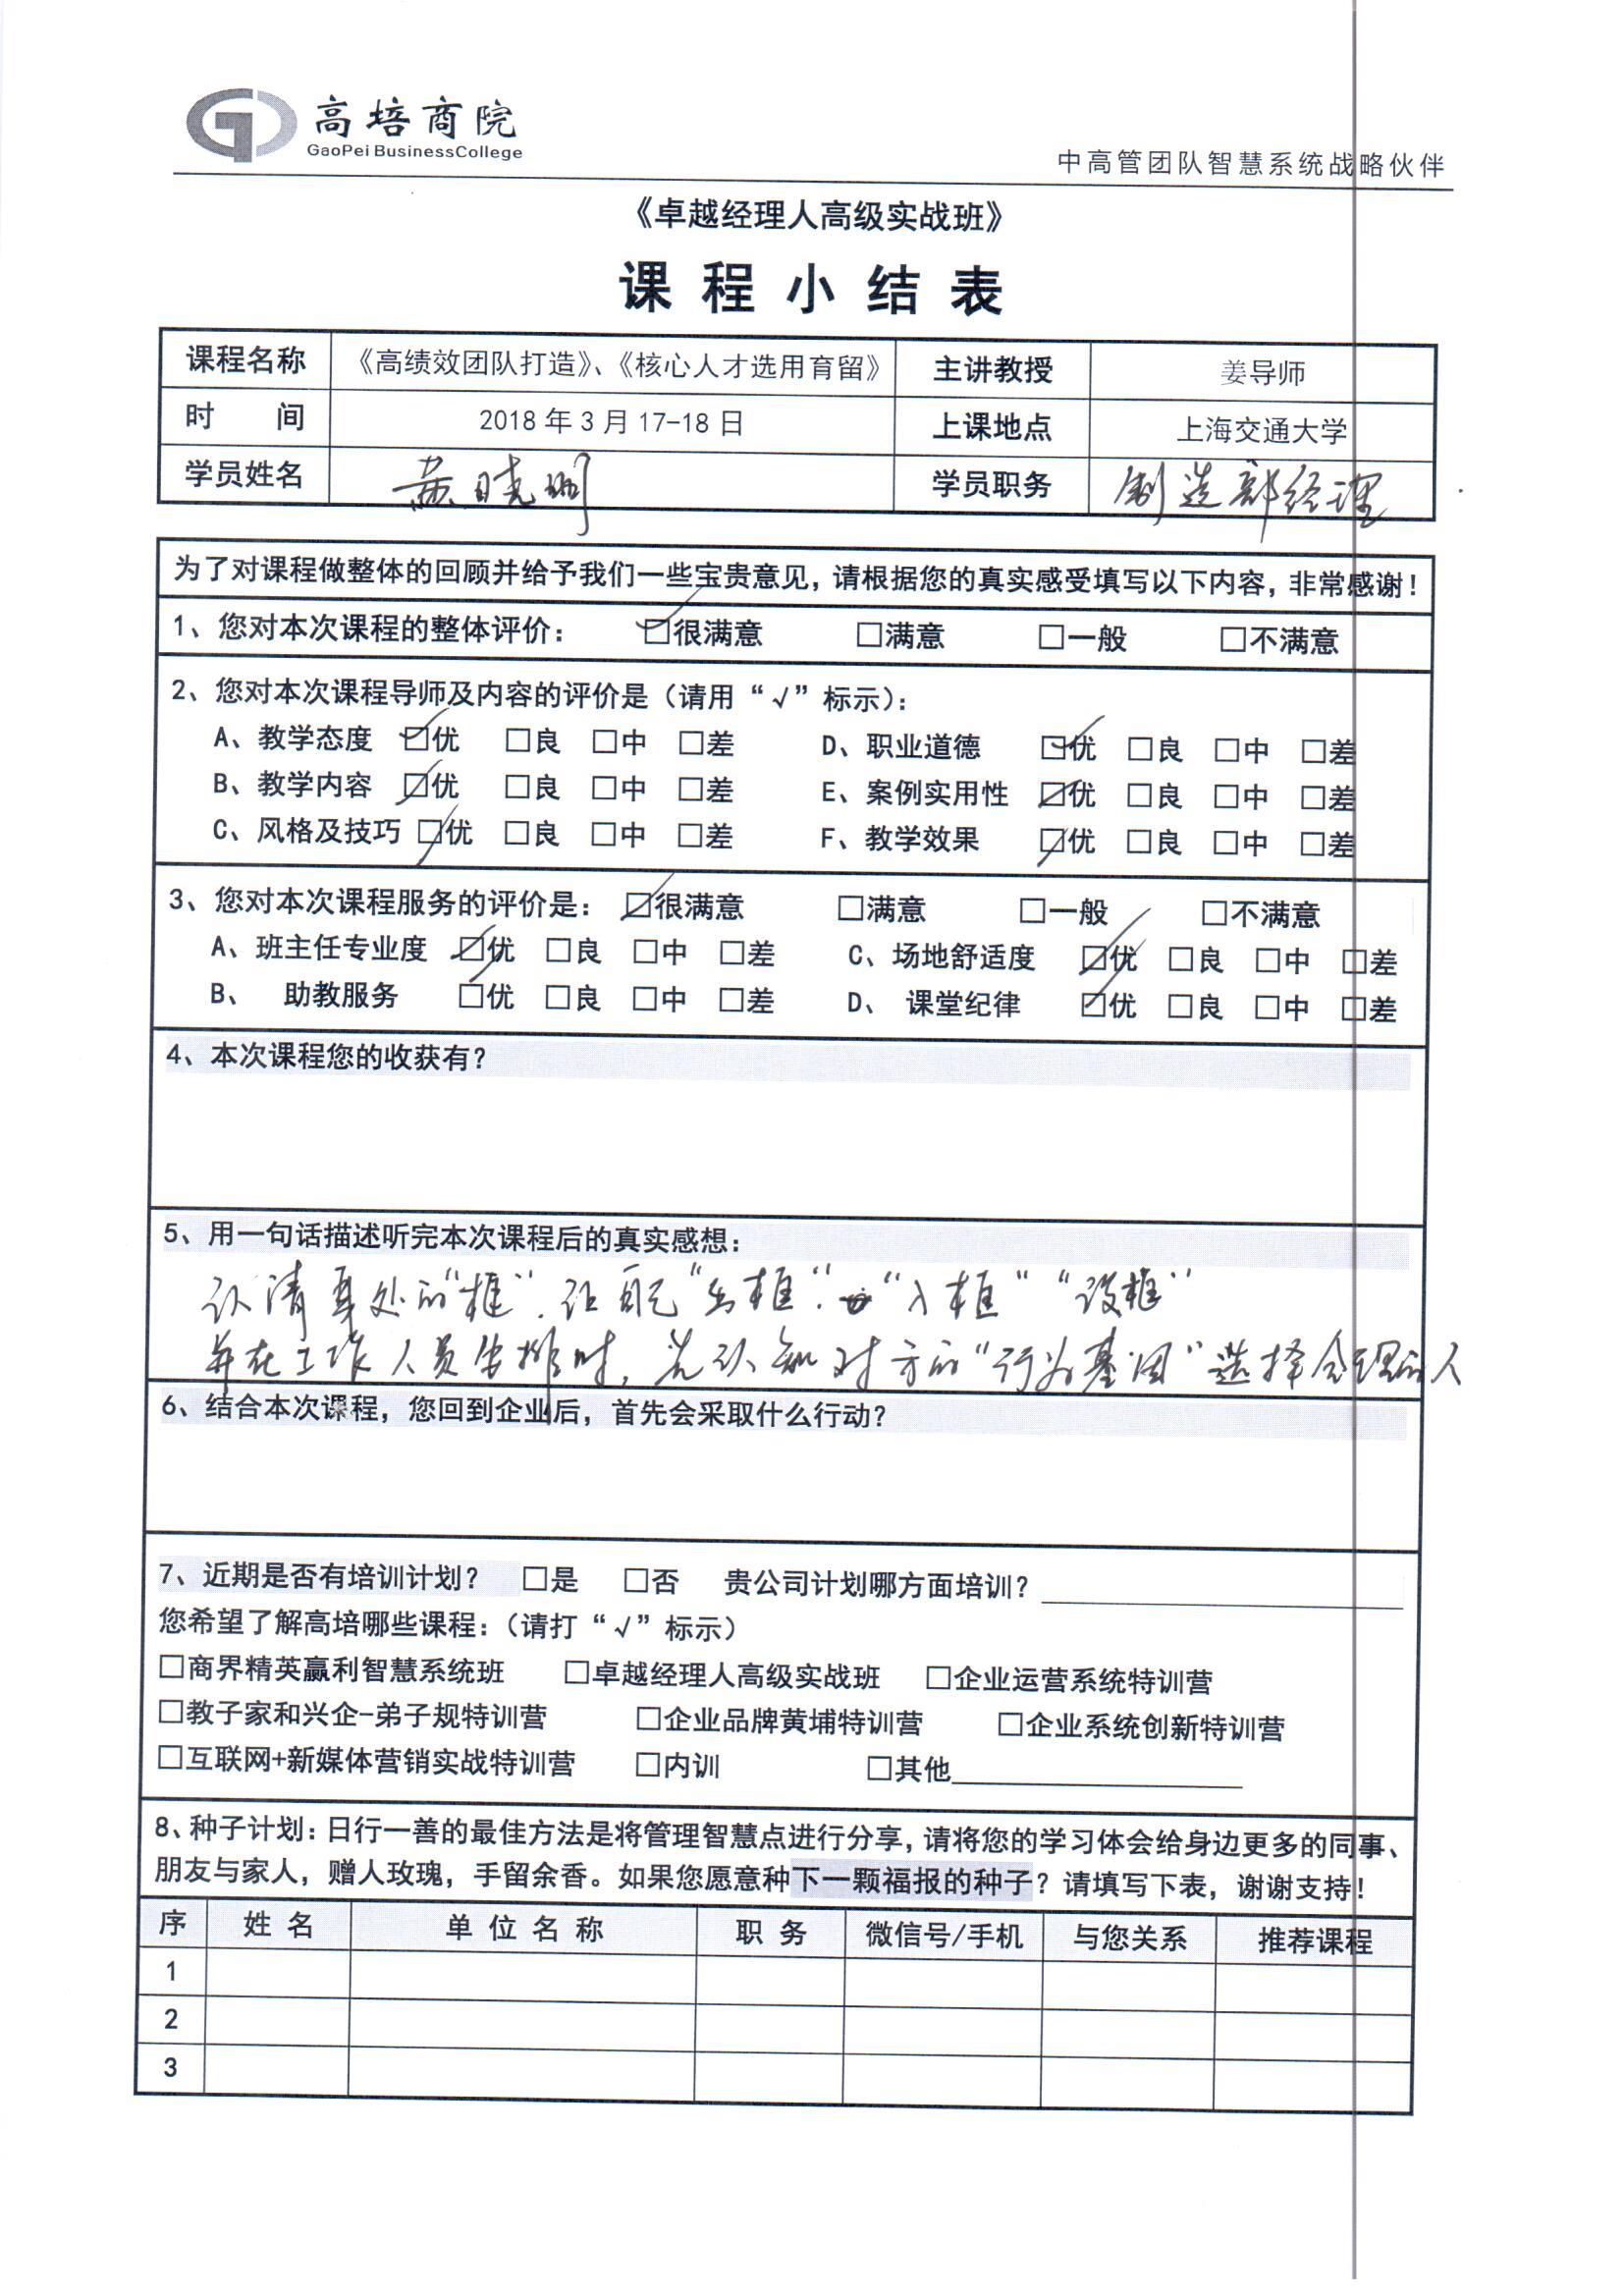 高培商院
GaoPei BusinessCollege
中高管团队智慧系统战略伙伴
《卓越经理人高级实战班》
课程小结表
课程名称 《高绩效团队打造》、《核心人才选用育留》 主讲教授 姜导师
时 间 2018年3月17-18日 上课地点 上海交通大学
学员姓名 黄晓明 学员职务 制造部经理
为了对课程做整体的回顾并给予我们一些宝贵意见，请根据您的真实感受填写以下内容，非常感谢！
1、您对本次课程的整体评价： ☑很满意 □满意 □一般 □不满意
2、您对本次课程导师及内容的评价是（请用“√”标示）：
A、教学态度 ☑优 □良 □中 □差 D、职业道德 ☑优 □良 □中 □差
B、教学内容 ☑优 □良 □中 □差 E、案例实用性 ☑优 □良 □中 □差
C、风格及技巧 ☑优 □良 □中 □差 F、教学效果 ☑优 □良 □中 □差
3、您对本次课程服务的评价是： ☑很满意 □满意 □一般 □不满意
A、班主任专业度 ☑优 □良 □中 □差 C、场地舒适度 ☑优 □良 □中 □差
B、 助教服务 ☑优 □良 □中 □差 D、 课堂纪律 ☑优 □良 □中 □差
4、本次课程您的收获有？
5、用一句话描述听完本次课程后的真实感想：
认清身处的“框”．让自己“出框”．“入框”“设框”
并在工作人员安排时，先认知对方的“行为基因”选择合理的人
6、结合本次课程，您回到企业后，首先会采取什么行动？
7、近期是否有培训计划？ □是 □否 贵公司计划哪方面培训？
您希望了解高培哪些课程：（请打“√”标示）
□商界精英赢利智慧系统班 □卓越经理人高级实战班 □企业运营系统特训营
□教子家和兴企-弟子规特训营 □企业品牌黄埔特训营 □企业系统创新特训营
□互联网+新媒体营销实战特训营 □内训 □其他
8、种子计划：日行一善的最佳方法是将管理智慧点进行分享，请将您的学习体会给身边更多的同事、
朋友与家人，赠人玫瑰，手留余香。如果您愿意种下一颗福报的种子？请填写下表，谢谢支持！
序 姓名 单位名称 职务 微信号/手机 与您关系 推荐课程
1
2
3